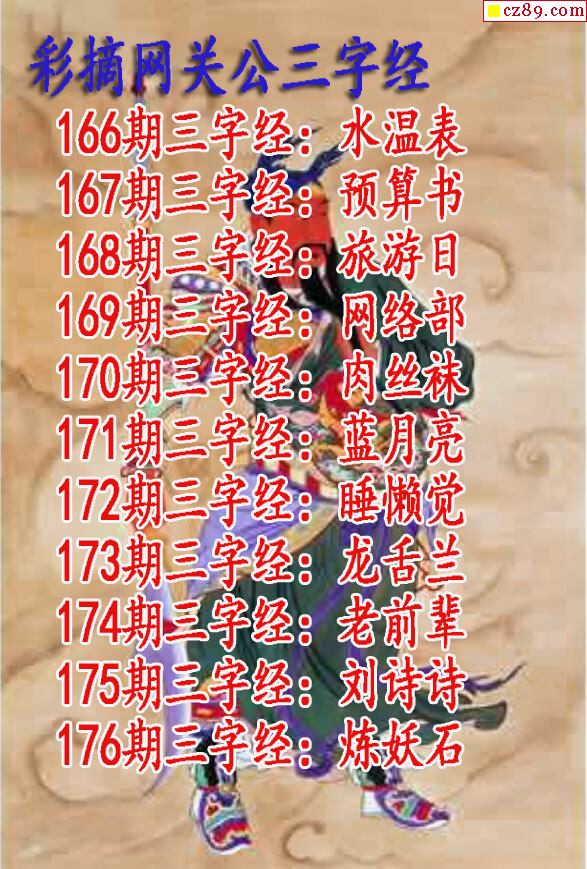 cz89.com
彩摘网关公三字经
166期三字经：水温表
167期三字经：预算书
168期三字经：旅游日
169期三字经：网络部
170期三字经：肉丝袜
171期三字经：蓝月亮
172期三字经：睡懒觉
173期三字经：龙舌兰
174期三字经：老前辈
175期三字经：刘诗诗
176期三字经：炼妖石